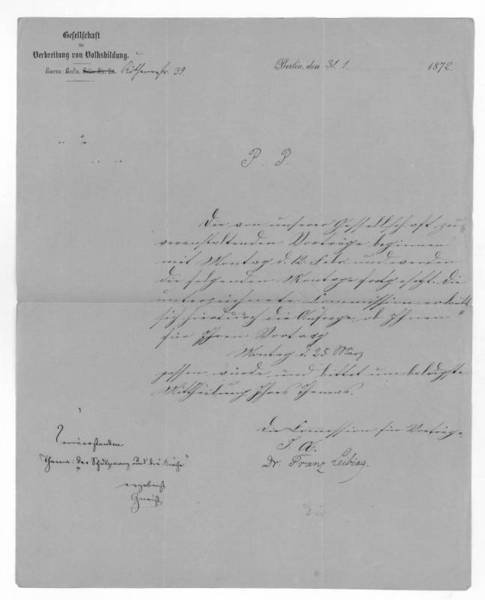 Gesellschaft
für
Verbreitung von Volksbildung.
Bureau: Berlin, Köthenerstr. 39
Berlin, den 31. 1. 1872
P. P.
Die von unserer Gesellschaft zu
veranstaltenden Vorträge beginnen
mit Montag d. 12. Febr. und werden
die folgenden Montage fortgesetzt. Die
unterzeichnete Commission erlaubt
sich hierdurch die Anfrage, ob Ihnen
für Ihren Vortrag
Montag d. 25. März
passen würde und bittet um baldigste
Mittheilung Ihres Themas.
Die Commission für Vorträge.
I. A.
Dr. Franz
Einverstanden
Thema: Der Schulzwang und die Kirche
ergebenst
Gneist